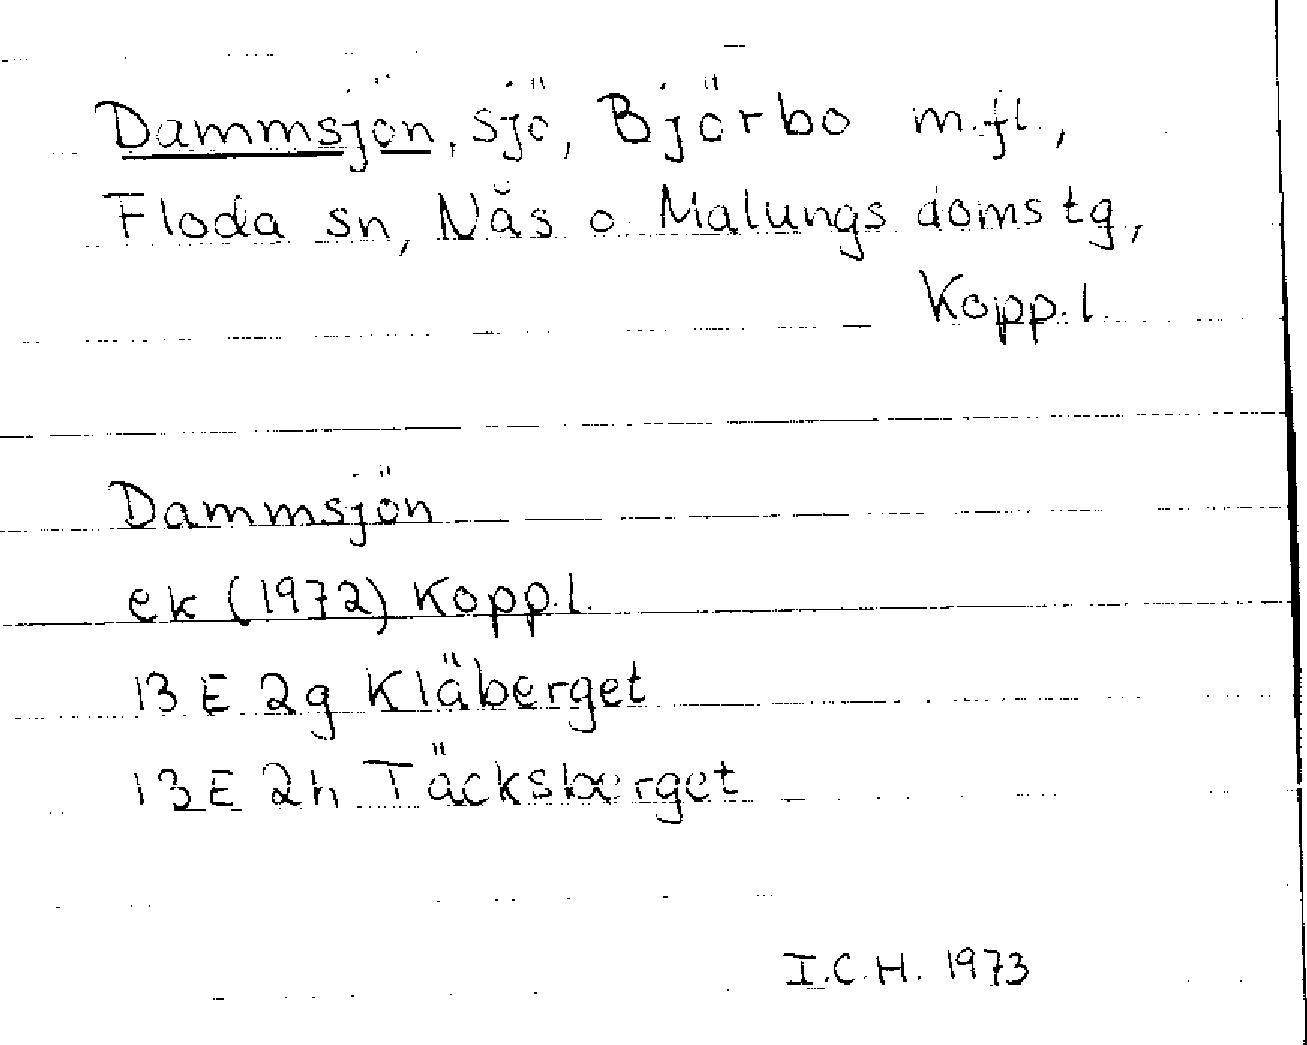 Dammsjön, sjö, Björbo m.fl.,
Floda sn, Näs o Malungs domstg,
Kopp.l.
Dammsjön
ek (1972) Kopp.l.
13 E 2g Kläberget
13 E 2h Täcksberget
I.C.H. 1973